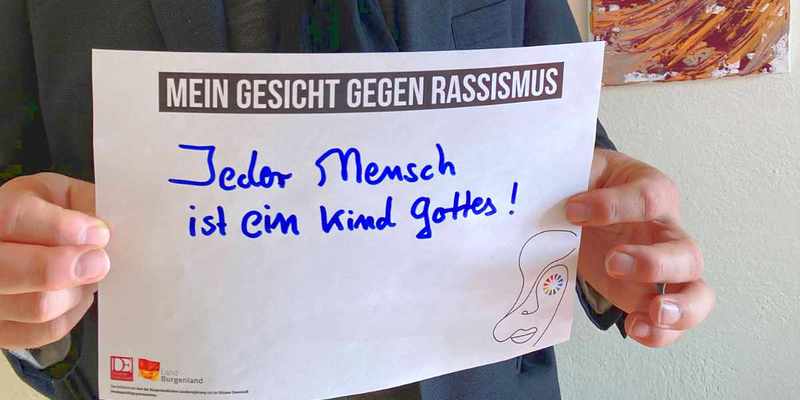 MEIN GESICHT GEGEN RASSISMUS
Jeder Mensch
ist ein Kind Gottes!
Land
Burgenland